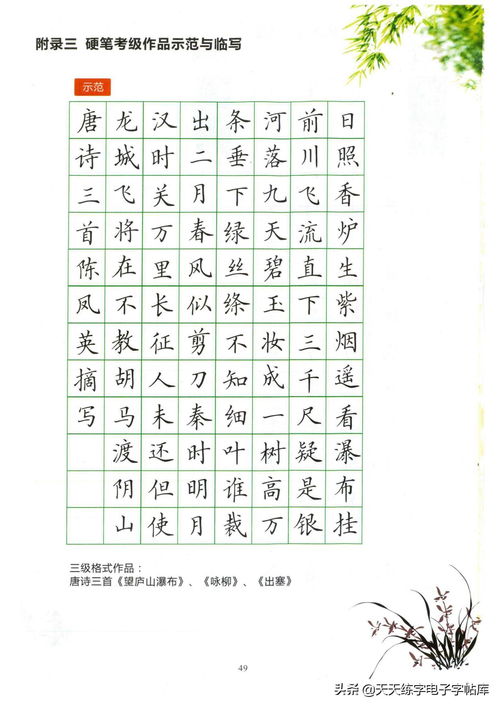 附录三 硬笔考级作品示范与临写
示范
日照香炉生紫烟遥看瀑布挂
前川飞流直下三千尺疑是银
河落九天碧玉妆成一树高万
条垂下绿丝绦不知细叶谁裁
出二月春风似剪刀秦时明月
汉时关万里长征人未还但使
龙城飞将在不教胡马渡阴山
唐诗三首陈凤英摘写
三级格式作品：
唐诗三首《望庐山瀑布》、《咏柳》、《出塞》
49
头条 @天天练字电子字帖库